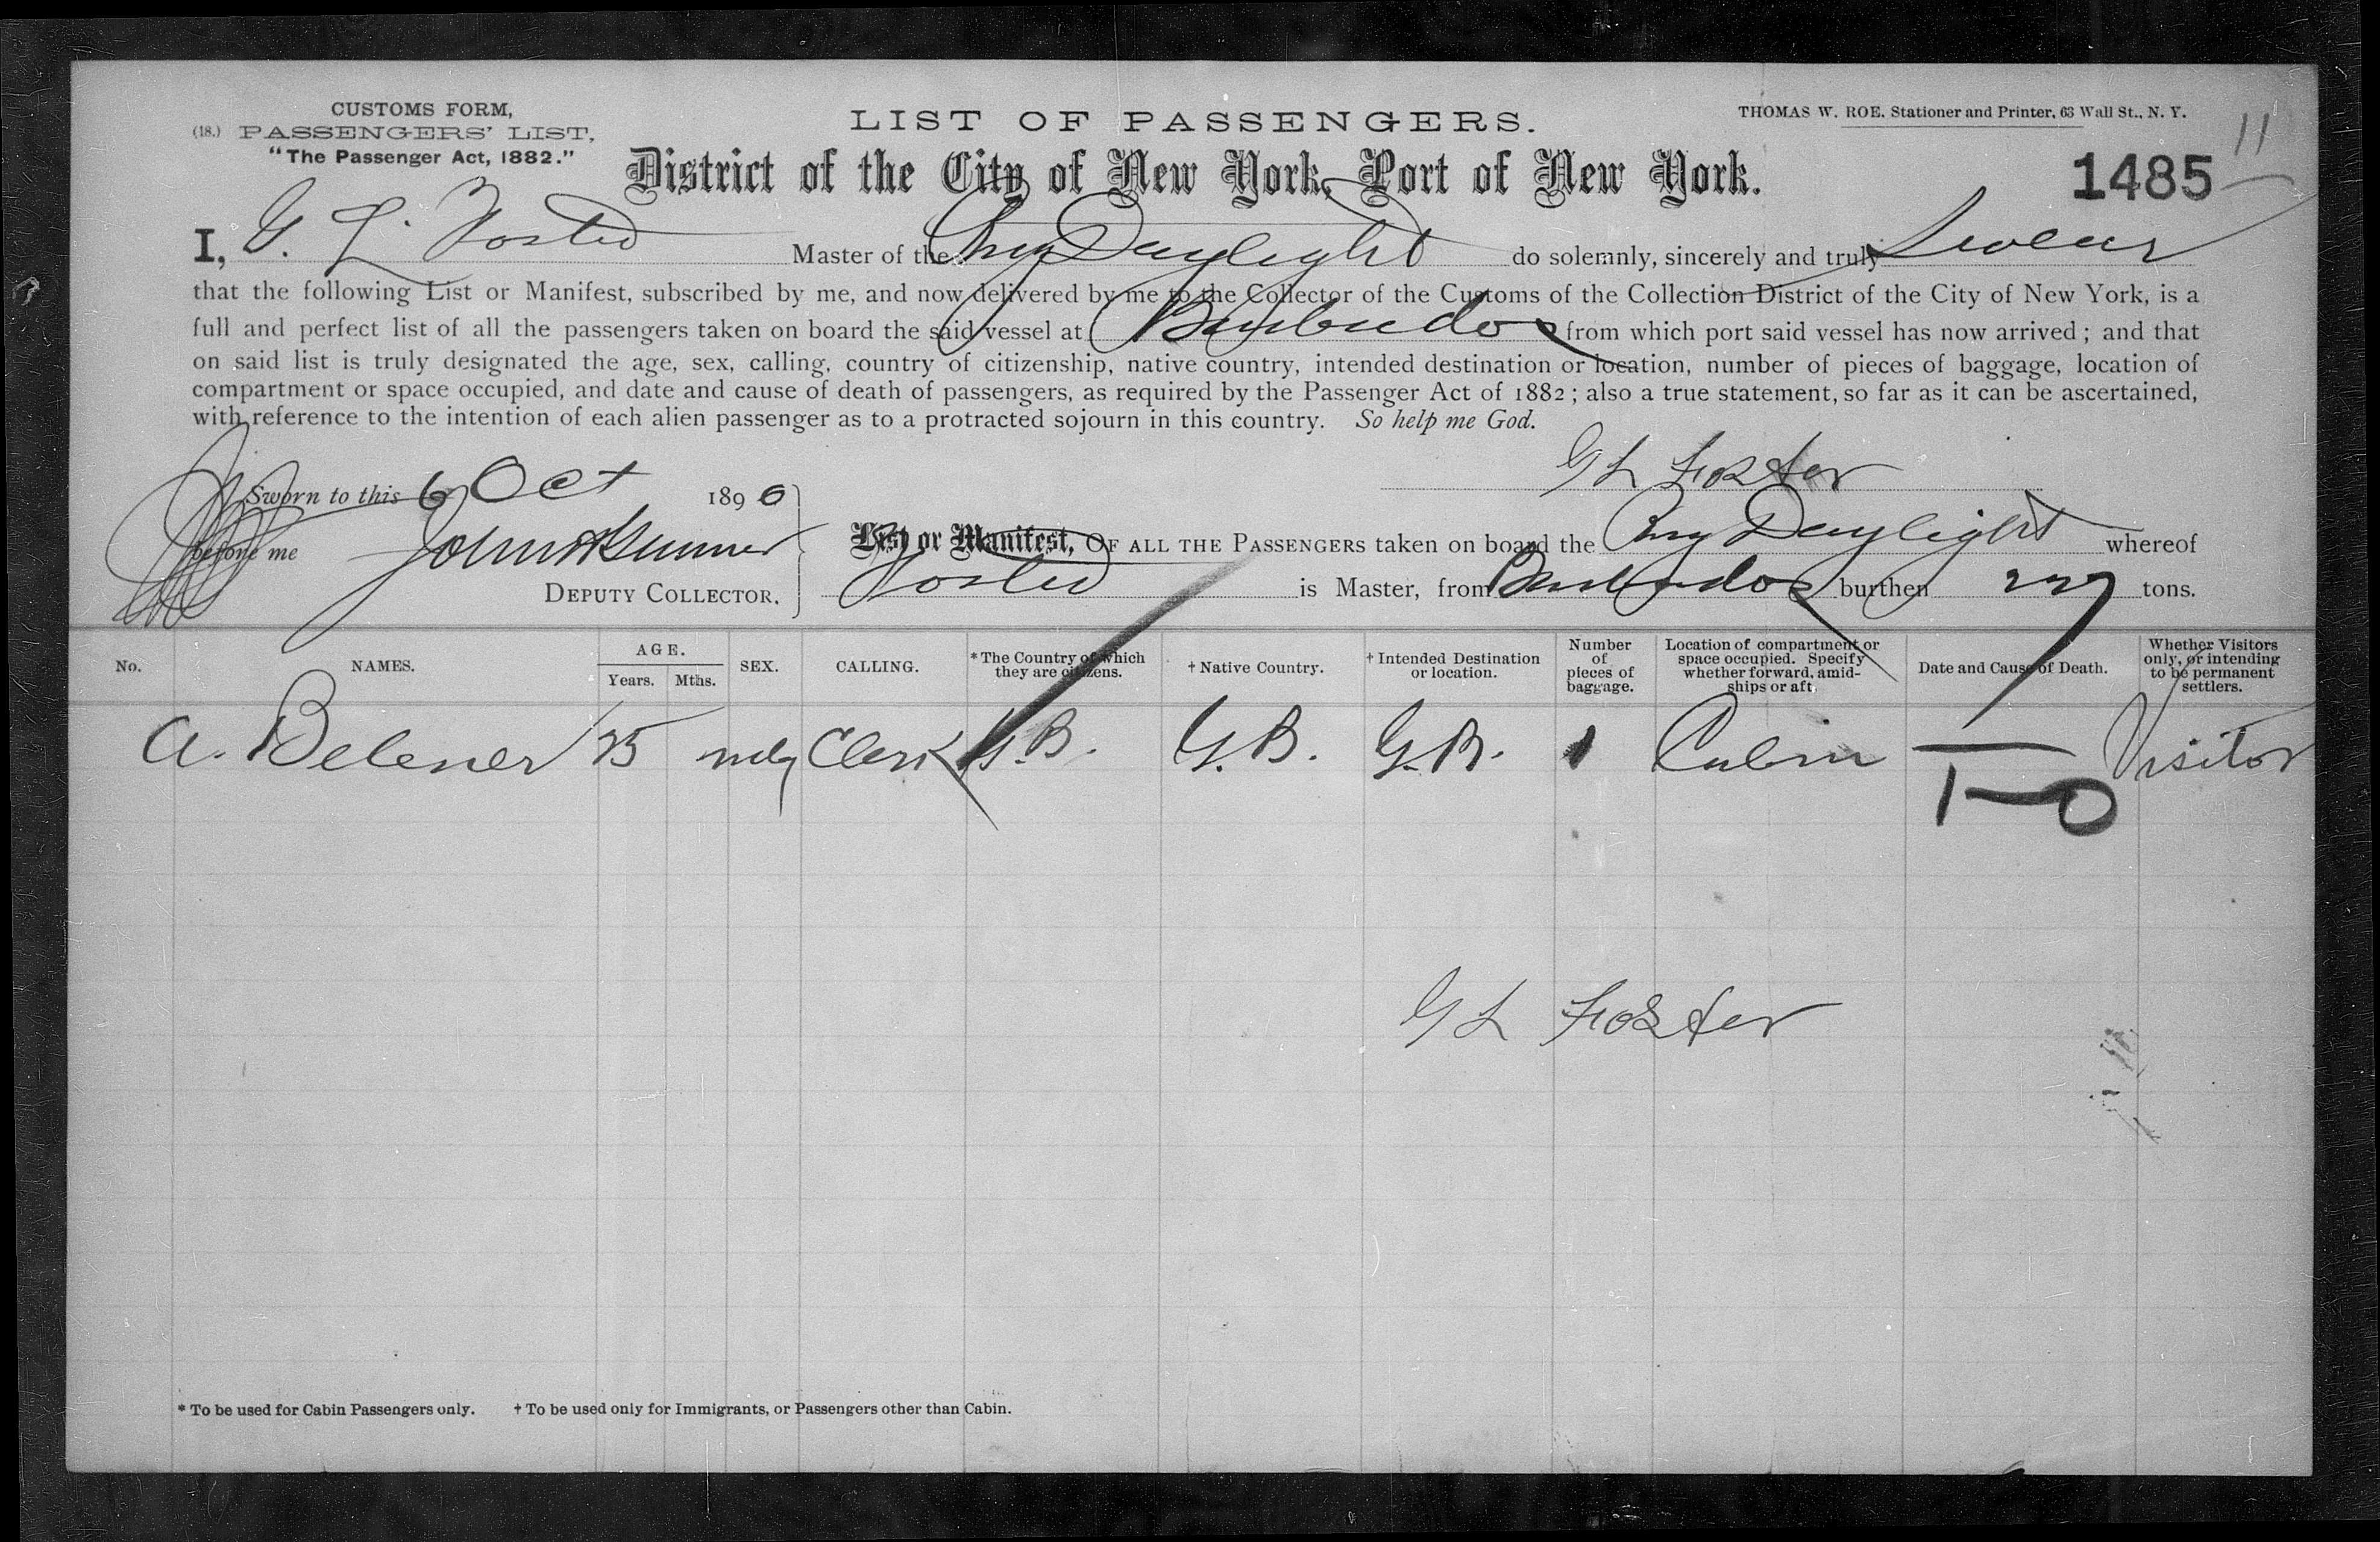 CUSTOMS FORM,
(18.) PASSENGERS' LIST,
"The Passenger Act, 1882."
LIST OF PASSENGERS.
THOMAS W. ROE. Stationer and Printer, 63 Wall St., N. Y.
11
District of the City of New York, Port of New York.
1485
I, G. L. Foster Master of the Daylight do solemnly, sincerely and truly Swear
that the following List or Manifest, subscribed by me, and now delivered by me to the Collector of the Customs of the Collection District of the City of New York, is a
full and perfect list of all the passengers taken on board the said vessel at Barbados from which port said vessel has now arrived; and that
on said list is truly designated the age, sex, calling, country of citizenship, native country, intended destination or location, number of pieces of baggage, location of
compartment or space occupied, and date and cause of death of passengers, as required by the Passenger Act of 1882; also a true statement, so far as it can be ascertained,
with reference to the intention of each alien passenger as to a protracted sojourn in this country. So help me God.
G L Foster
Sworn to this 6 Oct 1890
before me John
DEPUTY COLLECTOR.
List or Manifest, OF ALL THE PASSENGERS taken on board the Daylight whereof
Foster is Master, from Barbados burthen tons.
No. NAMES. AGE. Years. Mths. SEX. CALLING. *The Country of which they are citizens. †Native Country. †Intended Destination or location. Number of pieces of baggage. Location of compartment or space occupied. Specify whether forward, amidships or aft. Date and Cause of Death. Whether Visitors only, or intending to be permanent settlers.
A. Clerk G.B. G.B. G.B. 1 Cabin — Visitor
1—0
G L Foster
* To be used for Cabin Passengers only. † To be used only for Immigrants, or Passengers other than Cabin.